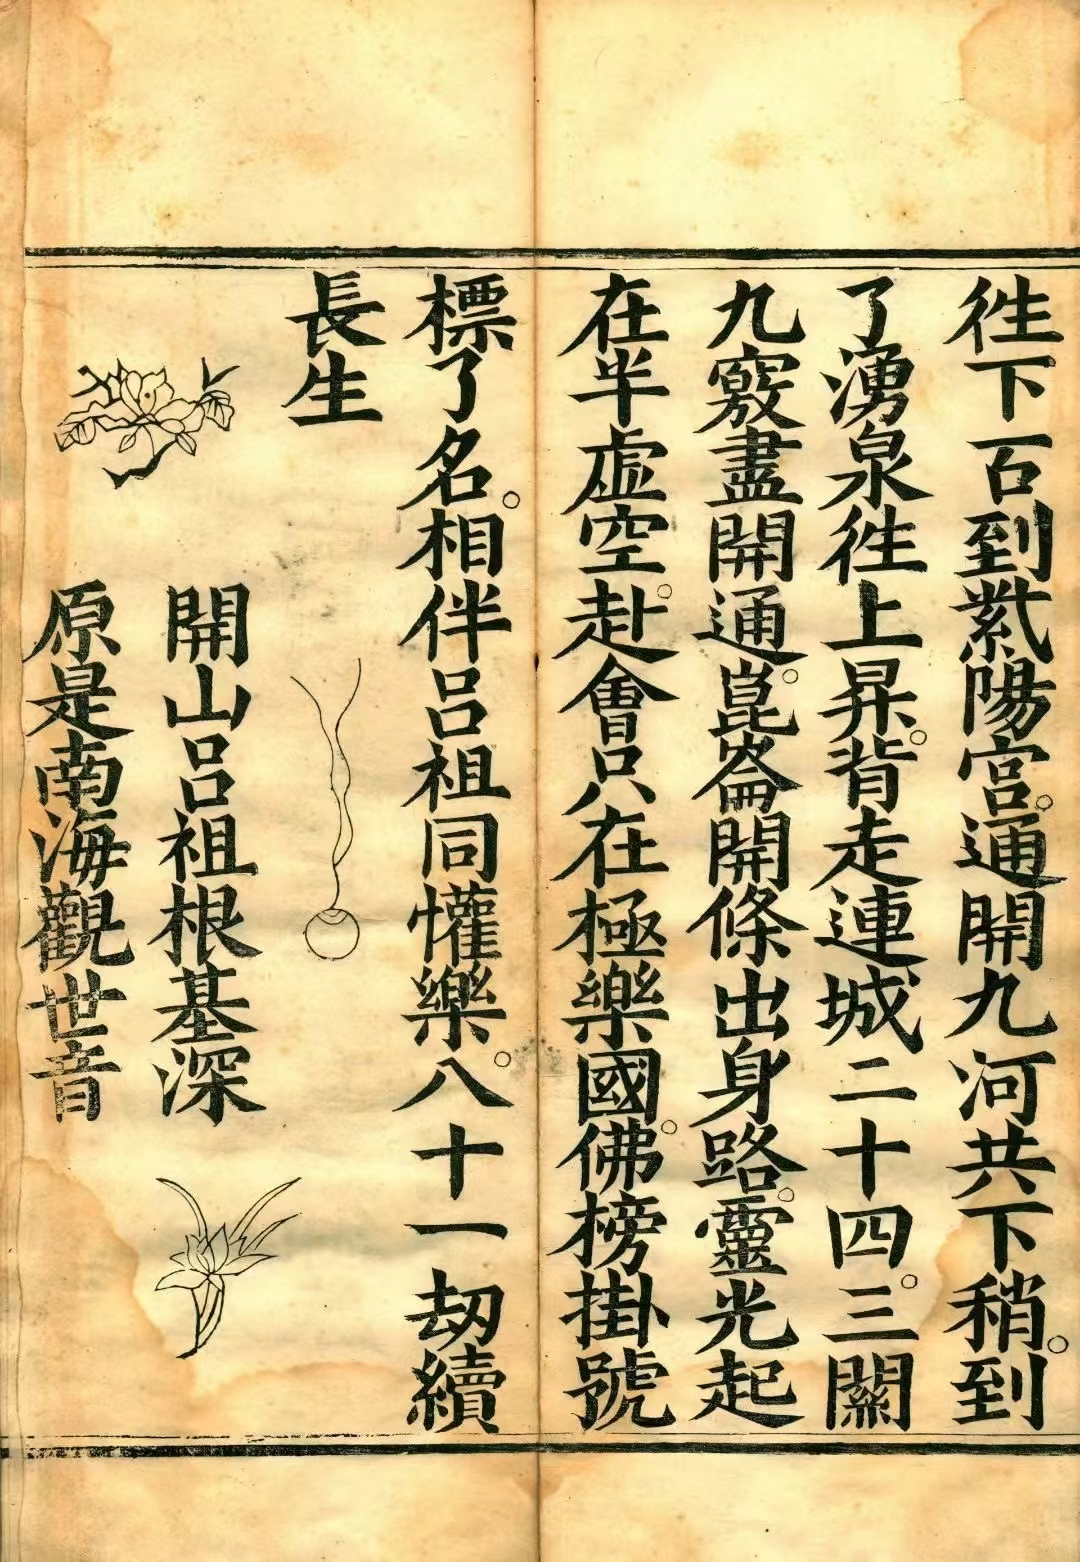 徃下一石到紫陽宮。通開九河共下稍。到
了湧泉徃上昇。背走連城二十四。三關
九竅盡開通。崑崙開條出身路。靈光起
在半虚空。赴會只在極樂國。佛榜掛號
標了名。相伴呂祖同懽樂。八十一劫續
長生
開山呂祖根基深
原是南海觀世音